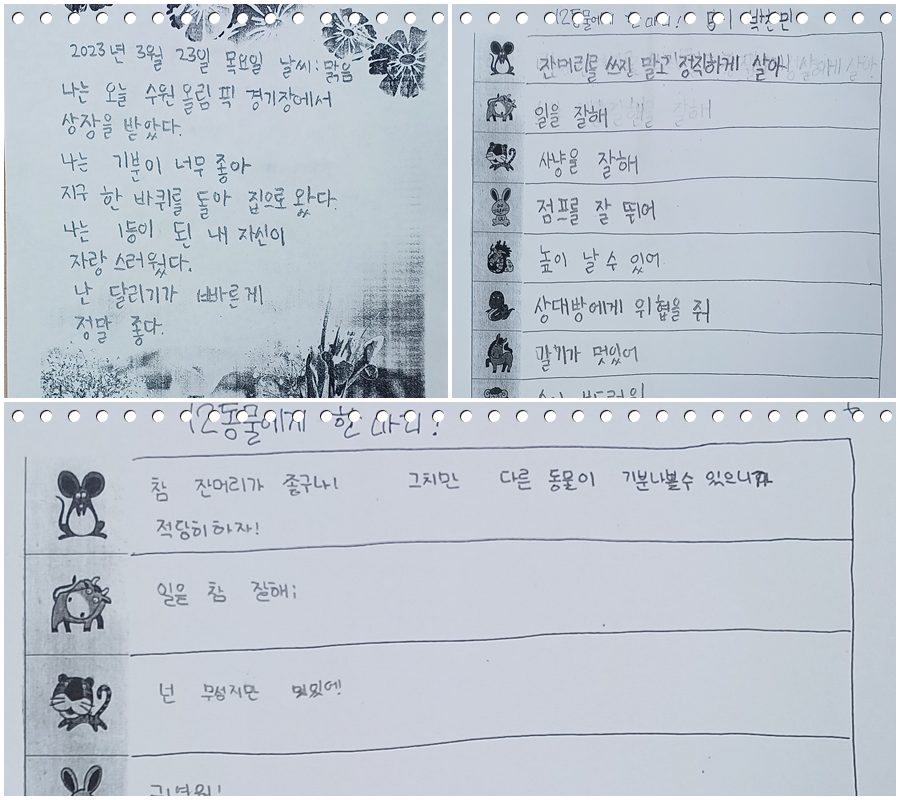 2023년 3월 23일 목요일 날씨:맑음
나는 오늘 수원 올림 픽 경기장에서
상장을 받았다.
나는 기분이 너무 좋아
지구 한 바퀴를 돌아 집으로 왔다.
나는 1등이 된 내 자신이
자랑 스러웠다.
난 달리기가 빠르게
정말 좋다.
12동물에게 한 마디!
잔머리를 쓰진 말고 정직하게 살아
일을 잘해
사냥을 잘해
점프를 잘 뛰어
높이 날 수 있어
상대방에게 위협을 줘
갈기가 멋있어
12동물에게 한 마디!
참 잔머리가 좋구나! 그치만 다른 동물이 기분나쁠수 있으니까
적당히하자!
일을 참 잘해!
넌 무섭지만 멋있어!
귀여워!